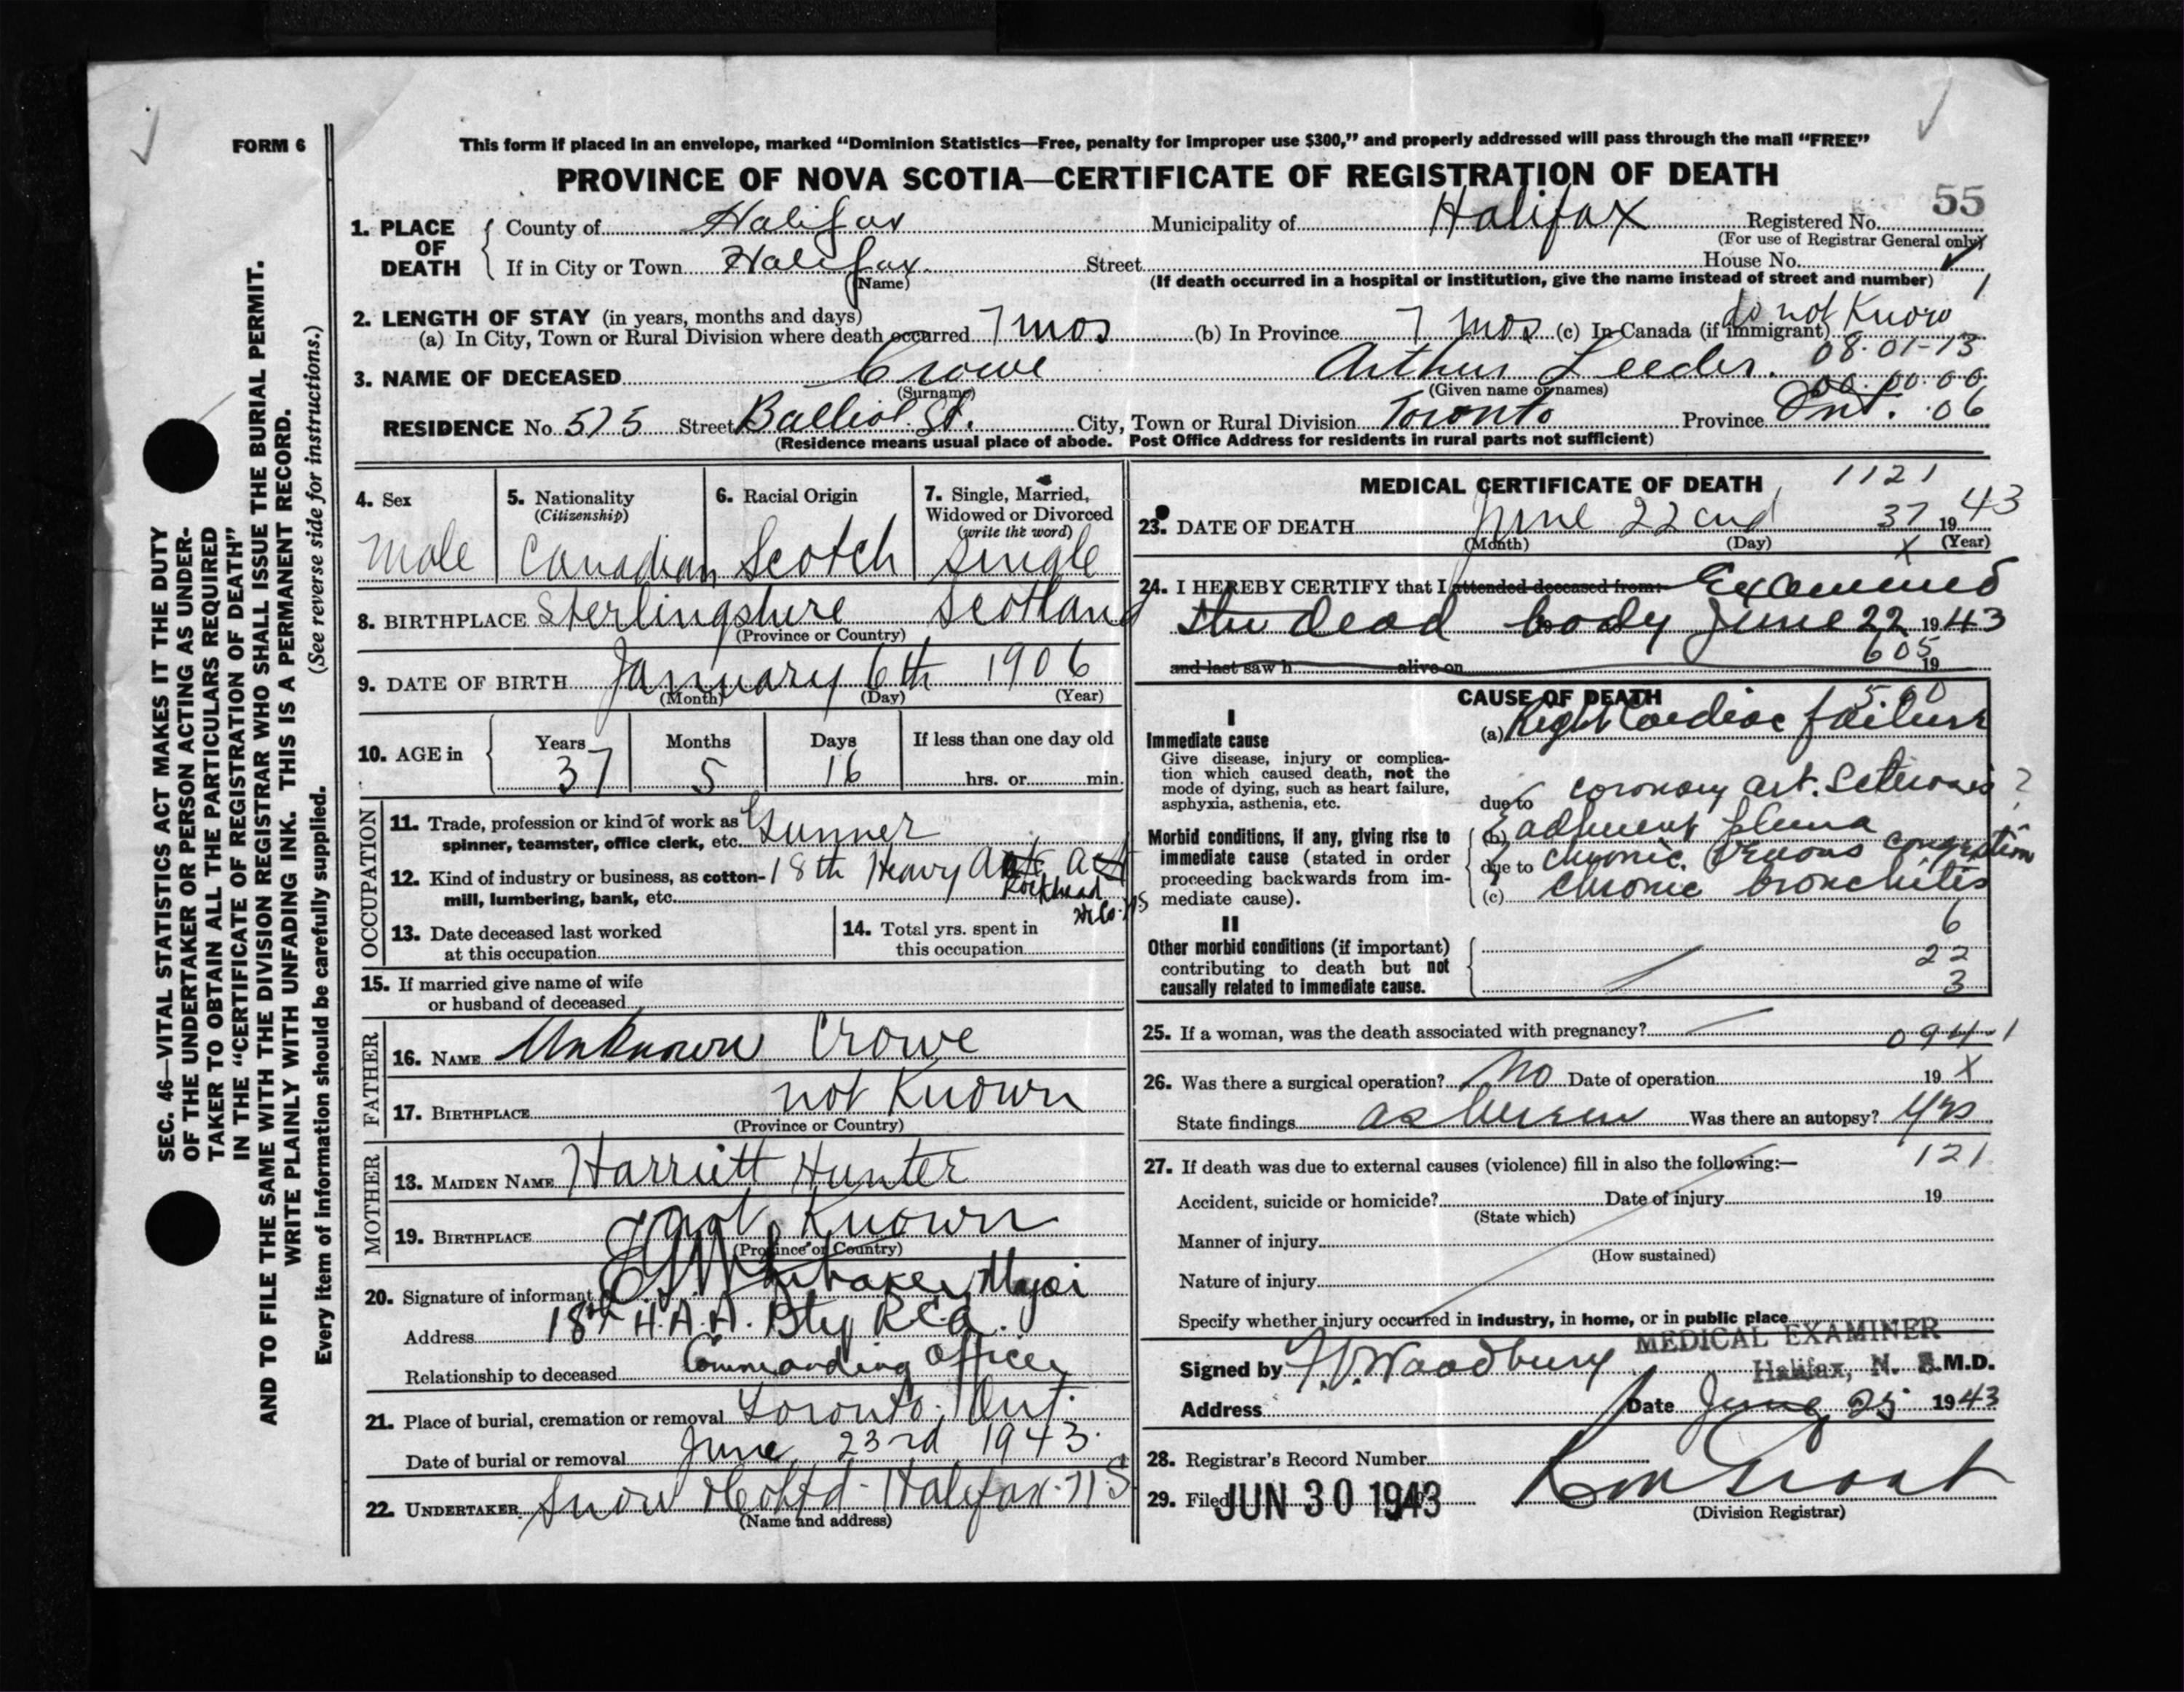 FORM 6
This form if placed in an envelope, marked "Dominion Statistics—Free, penalty for improper use $300," and properly addressed will pass through the mail "FREE"
PROVINCE OF NOVA SCOTIA—CERTIFICATE OF REGISTRATION OF DEATH
55
1. PLACE OF DEATH County of Halifax Municipality of Halifax Registered No.
(For use of Registrar General only)
If in City or Town Halifax Street House No.
(Name) (If death occurred in a hospital or institution, give the name instead of street and number) 1
2. LENGTH OF STAY (in years, months and days) do not Know
(a) In City, Town or Rural Division where death occurred 7 mos (b) In Province 7 mos (c) In Canada (if immigrant)
08-01-13
3. NAME OF DECEASED Crowe Arthur Leeder.
(Surname) (Given name or names) 00.00.00
RESIDENCE No. 575 Street Balliol St. City, Town or Rural Division Toronto Province Ont. 06
(Residence means usual place of abode. Post Office Address for residents in rural parts not sufficient)
4. Sex 5. Nationality 6. Racial Origin 7. Single, Married,
(Citizenship) Widowed or Divorced
(write the word)
Male Canadian Scotch Single
8. BIRTHPLACE Sterlingshire Scotland
(Province or Country)
9. DATE OF BIRTH January 6th 1906
(Month) (Day) (Year)
10. AGE in Years Months Days If less than one day old
37 5 16 hrs. or min.
OCCUPATION
11. Trade, profession or kind of work as
spinner, teamster, office clerk, etc. Gunner
12. Kind of industry or business, as cotton- 18th Heavy
mill, lumbering, bank, etc. Rockhead
13. Date deceased last worked
at this occupation
14. Total yrs. spent in
this occupation
15. If married give name of wife
or husband of deceased
FATHER
16. NAME Unknown Crowe
17. BIRTHPLACE not Known
(Province or Country)
MOTHER
18. MAIDEN NAME Harriett Hunter
19. BIRTHPLACE not Known
(Province or Country)
20. Signature of informant Whitaker, Major
Address 18th H.A.A. Bty RCA.
Relationship to deceased Commanding Officer
21. Place of burial, cremation or removal Toronto, Ont.
Date of burial or removal June 23rd 1943.
22. UNDERTAKER Snow & Co Ltd - Halifax. N S
(Name and address)
MEDICAL CERTIFICATE OF DEATH 1121
23. DATE OF DEATH June 22nd 37 19 43
(Month) (Day) X (Year)
24. I HEREBY CERTIFY that I attended deceased from:— Examined
the dead body June 22 19 43
and last saw h alive on 605 19
CAUSE OF DEATH 500
I
Immediate cause (a) Right Cardiac failure
Give disease, injury or complica-
tion which caused death, not the
mode of dying, such as heart failure,
asphyxia, asthenia, etc.
due to coronary art. Sclerosis ?
Morbid conditions, if any, giving rise to
immediate cause (stated in order
proceeding backwards from im-
mediate cause).
(b) adherent pleura
due to chronic venous congestion
(c) chronic bronchitis
II
6
Other morbid conditions (if important)
contributing to death but not
causally related to immediate cause.
22
3
25. If a woman, was the death associated with pregnancy? 094 1
26. Was there a surgical operation? No Date of operation 19 X
State findings as herein Was there an autopsy? Yes
27. If death was due to external causes (violence) fill in also the following:— 121
Accident, suicide or homicide? Date of injury 19
(State which)
Manner of injury
(How sustained)
Nature of injury
Specify whether injury occurred in industry, in home, or in public place
MEDICAL EXAMINER
Signed by F.V. Woodbury Halifax, N. S. M.D.
Address Date June 25 1943
28. Registrar's Record Number
29. Filed JUN 30 1943
(Division Registrar)
SEC. 46—VITAL STATISTICS ACT MAKES IT THE DUTY
OF THE UNDERTAKER OR PERSON ACTING AS UNDER-
TAKER TO OBTAIN ALL THE PARTICULARS REQUIRED
IN THE "CERTIFICATE OF REGISTRATION OF DEATH"
AND TO FILE THE SAME WITH THE DIVISION REGISTRAR WHO SHALL ISSUE THE BURIAL PERMIT.
WRITE PLAINLY WITH UNFADING INK. THIS IS A PERMANENT RECORD.
Every item of information should be carefully supplied. (See reverse side for instructions.)